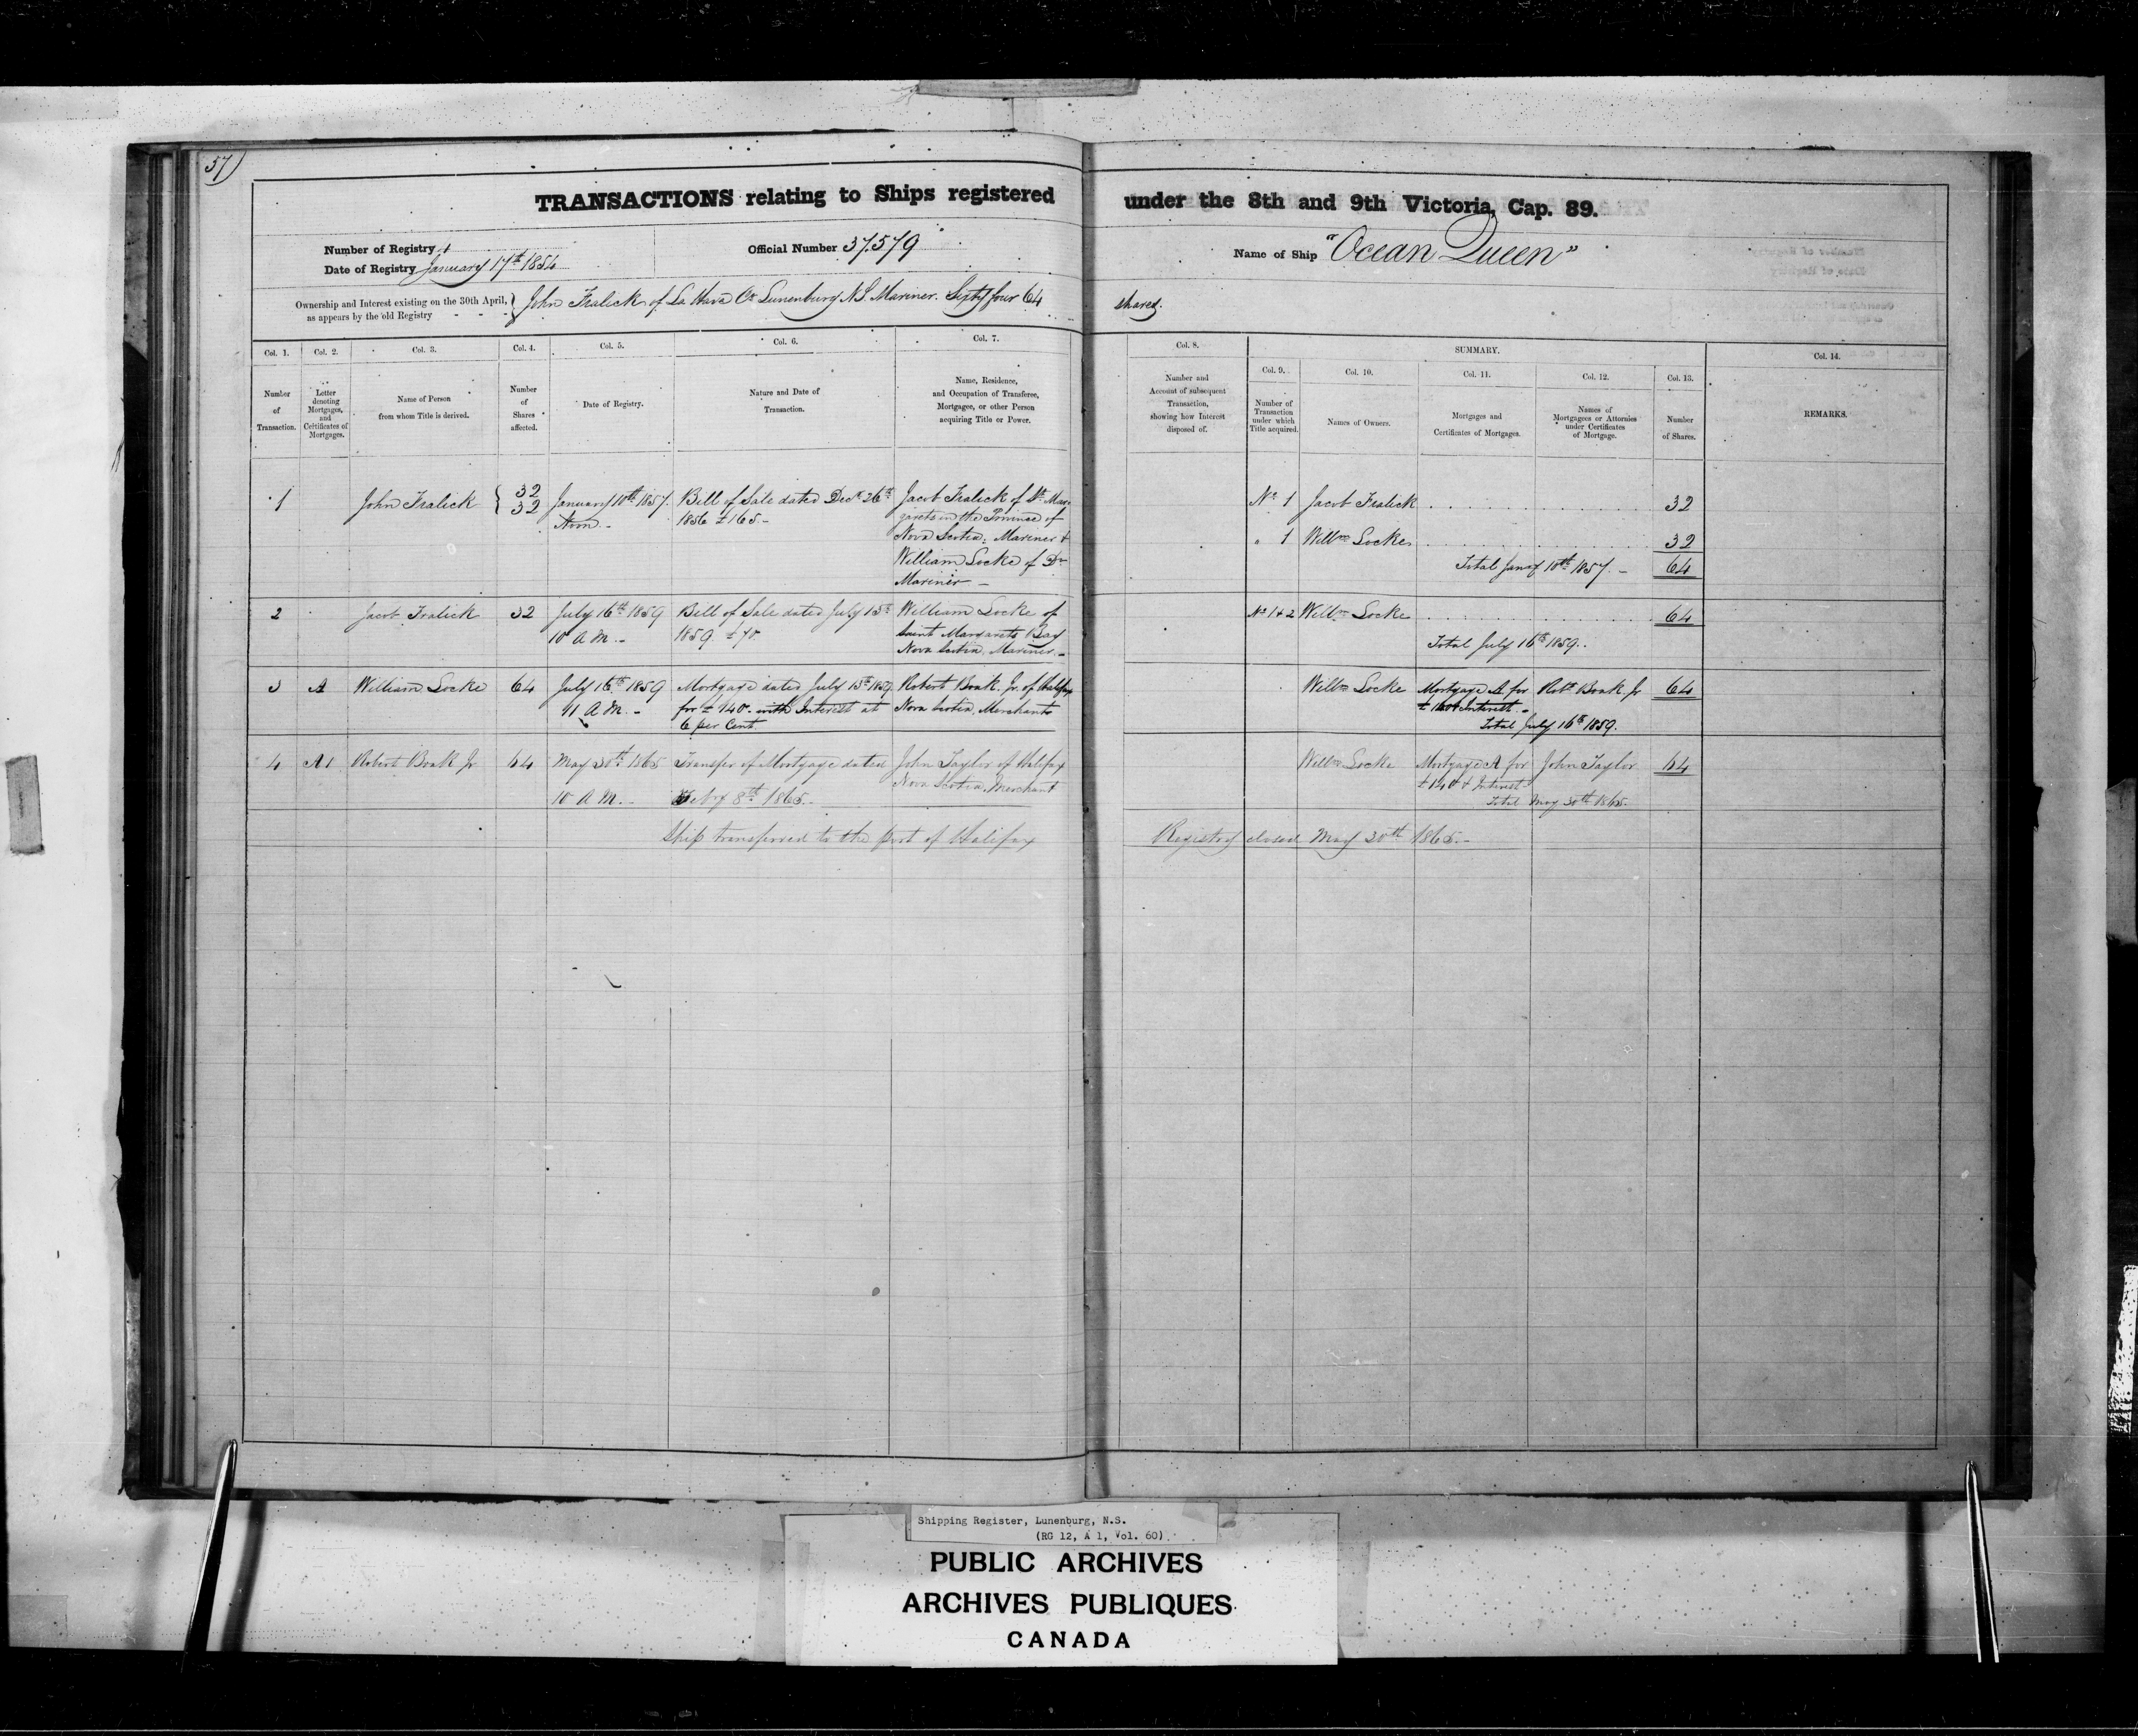 57)
TRANSACTIONS relating to Ships registered under the 8th and 9th Victoria, Cap. 89.
Number of Registry 1
Date of Registry January 17th 1854
Official Number 37.579
Name of Ship "Ocean Queen"
Ownership and Interest existing on the 30th April,
as appears by the old Registry - - -
John Fralick of La Have Co. Lunenburg N.S. Mariner. Sixty four 64 shares.
Col. 1.
Number
of
Transaction.
Col. 2.
Letter
denoting
Mortgages,
and
Certificates of
Mortgages.
Col. 3.
Name of Person
from whom Title is derived.
Col. 4.
Number
of
Shares
affected.
Col. 5.
Date of Registry.
Col. 6.
Nature and Date of
Transaction.
Col. 7.
Name, Residence,
and Occupation of Transferee,
Mortgagee, or other Person
acquiring Title or Power.
Col. 8.
Number and
Account of subsequent
Transaction,
showing how Interest
disposed of.
SUMMARY.
Col. 9.
Number of
Transaction
under which
Title acquired.
Col. 10.
Names of Owners.
Col. 11.
Mortgages and
Certificates of Mortgages.
Col. 12.
Names of
Mortgagees or Attornies
under Certificates
of Mortgage.
Col. 13.
Number
of Shares.
Col. 14.
REMARKS.
1
John Fralick
32
32
January 10th 1857.
Noon.-
Bill of Sale dated Decr 26th
1856 £165.-
Jacob Fralick of St. Mar-
garets in the Province of
Nova Scotia: Mariner &
William Locke of Do
Mariner -
No 1 Jacob Fralick 32
" 1 Willm Locke 32
Total Jany 10th 1857. - 64
2
Jacob Fralick
32
July 16th 1859
10 A M.-
Bill of Sale dated July 15th
1859 £40.
William Locke of
Saint Margarets Bay
Nova Scotia, Mariner.-
No 1 & 2 Willm Locke 64
Total July 16th 1859.
3
A
William Locke
64
July 16th 1859
11 A M.-
Mortgage dated July 15th 1859
for £140.- with Interest at
6 per Cent.
Robert Boak. Jr. of Halifax
Nova Scotia, Merchant
Willm Locke Mortgage A for Robt Boak Jr 64
Interest -
Total July 16th 1859.
4
A1
Robert Boak Jr
64
May 30th 1865
10 A M.-
Transfer of Mortgage dated
8th 1865.-
John Taylor of Halifax
Nova Scotia, Merchant
Willm Locke Mortgage A for John Taylor 64
£140 & Interest
Total May 30th 1865.
Ship transferred to the port of Halifax Registry closed May 30th 1865.-
Shipping Register, Lunenburg, N.S.
(RG 12, A 1, Vol. 60)
PUBLIC ARCHIVES
ARCHIVES PUBLIQUES
CANADA